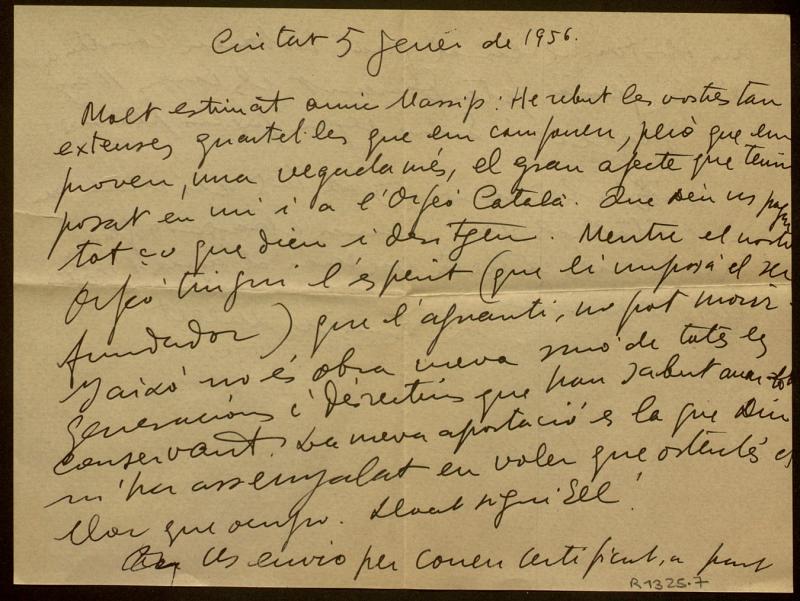 Ciutat 5 Gener de 1956.
Molt estimat amic Massip: He rebut les vostres tan
extenses quartel·les que em componen, però que em
proven, una vegada més, el gran afecte que teniu
posat en mi i a l'Orfeó Català. Que Déu us pagui
tot ço que dieu i desitgeu. Mentre el nostre
Orfeó tingui l'esperit (que li imposà el seu
fundador) que l'aguanti, no pot morir.
I això no és obra meva sinó de totes les
generacions i directius que han sabut anar-lo
conservant. La meva aportació és la que Déu
m'ha assenyalat en voler que ostentés el
lloc que ocupo. Lloat sigui Ell!
Us envio per correu certificat, a part
R 1325-7